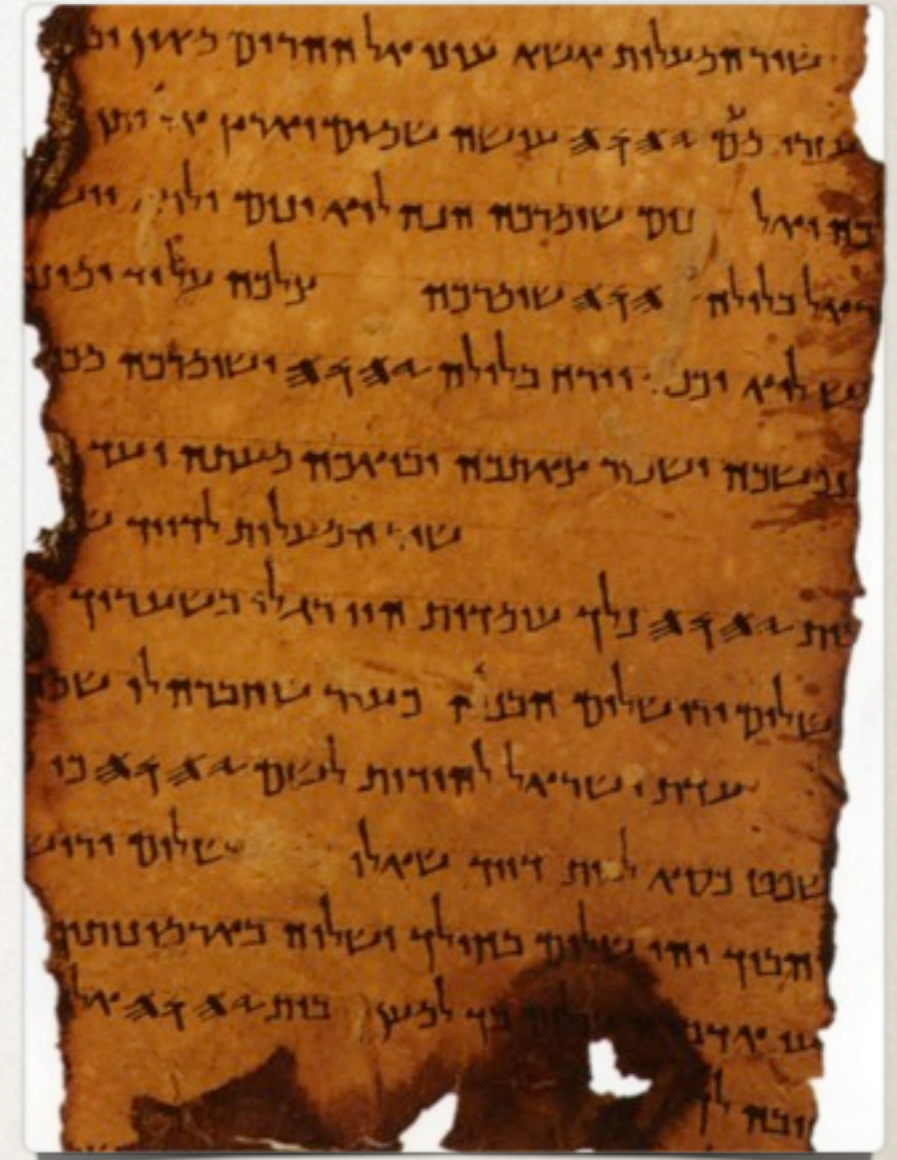 שיר המעלות אשא עיני אל ההרים מאין
עזרי מעם 𐤉𐤄𐤅𐤄 עושה שמים וארץ אל יתן
כה ואל נום שומרכה הנה לוא ינום ולוא
בלילה 𐤉𐤄𐤅𐤄 שומרכה צלכה על יד
לוא וירח בלילה 𐤉𐤄𐤅𐤄 ישומרכה
נפשכה ישמור צאתכה ובואכה מעתה ועד
שיר המעלות לדויד
בית 𐤉𐤄𐤅𐤄 נלך עומדות היו רגלי בשעריך
שלים ירושלים הבנויה כעיר שחברה לו
עדת ישראל להודות לשם 𐤉𐤄𐤅𐤄 כי
שפט כסא לבית דויד שאלו שלום ירוש
יהי שלום בחילך ושלוה בארמונותיך
שלום בך למען בית 𐤉𐤄𐤅𐤄
טובה לך